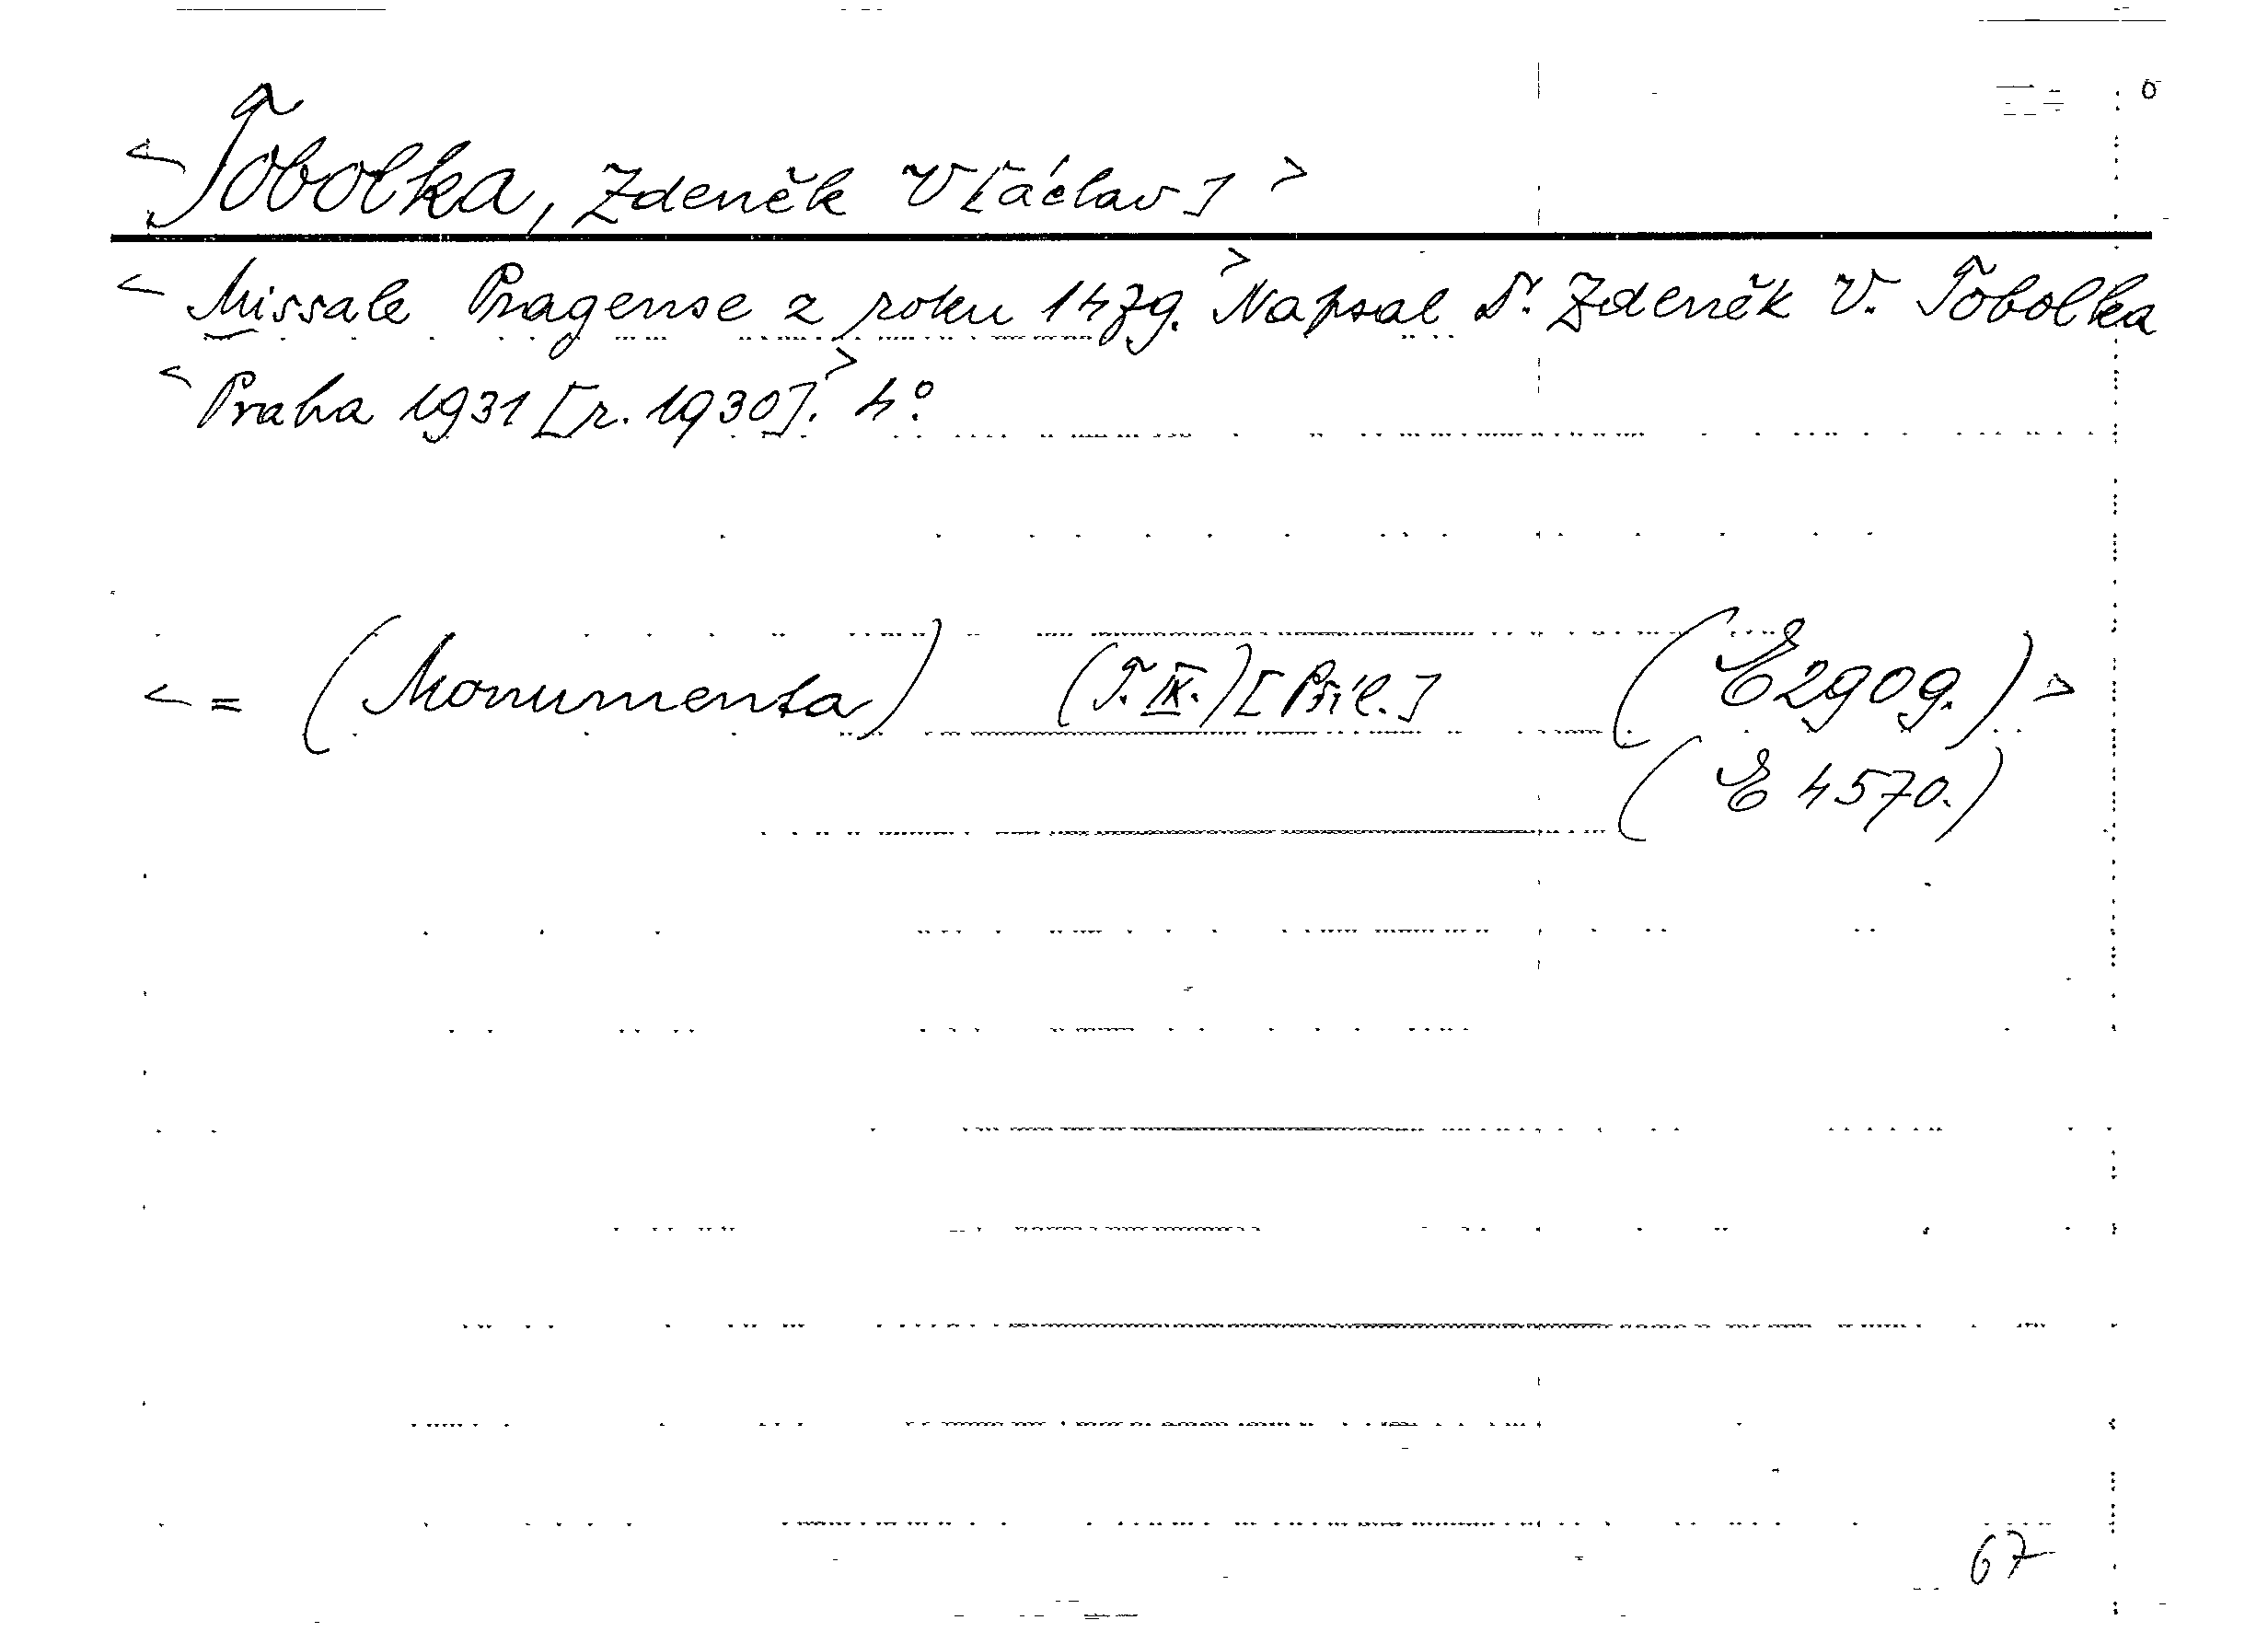 <Tobolka, Zdeněk V[áclav]>
<Missale Pragense z roku 1479.> Napsal Dr. Zdeněk V. Tobolka
<Praha 1931 [r. 1930].> 4°
<= (Monumenta) (T. IX.) [Příl.] (E 2909.)>
(E 4570.)
67